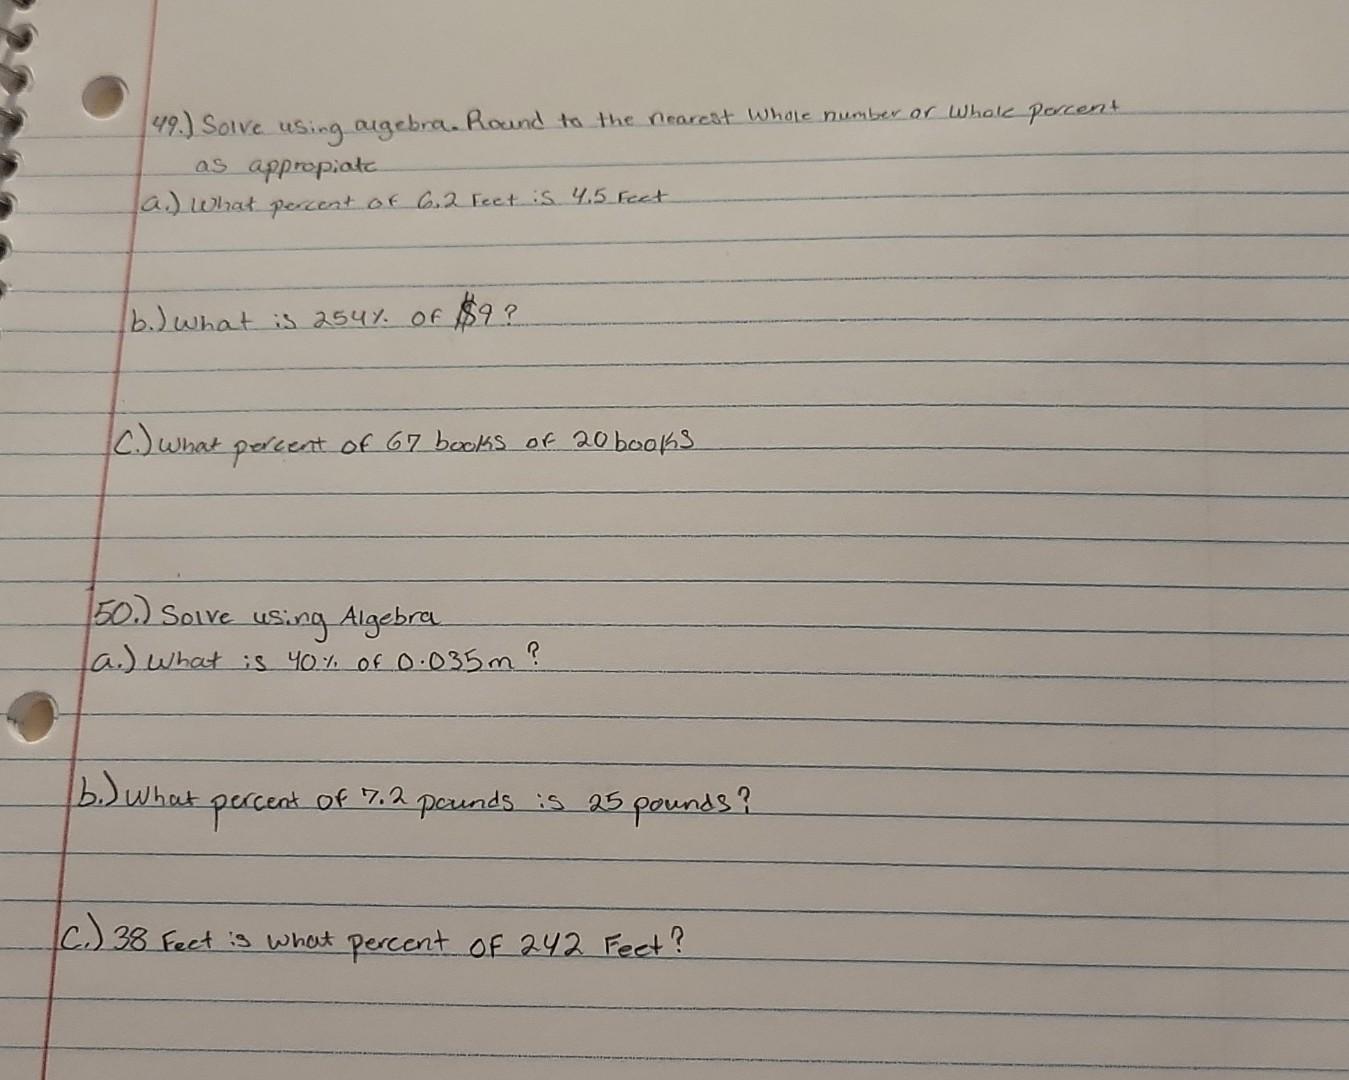 49.) Solve using algebra. Round to the nearest whole number or whole percent
as appropiate
a.) What percent of 6.2 Feet is 4.5 Feet
b.) What is 254% of $9?
C.) What percent of 67 books of 20 books
50.) Solve using Algebra
a.) What is 40% of 0.035m?
b.) What percent of 7.2 pounds is 25 pounds?
C.) 38 Feet is what percent of 242 Feet?